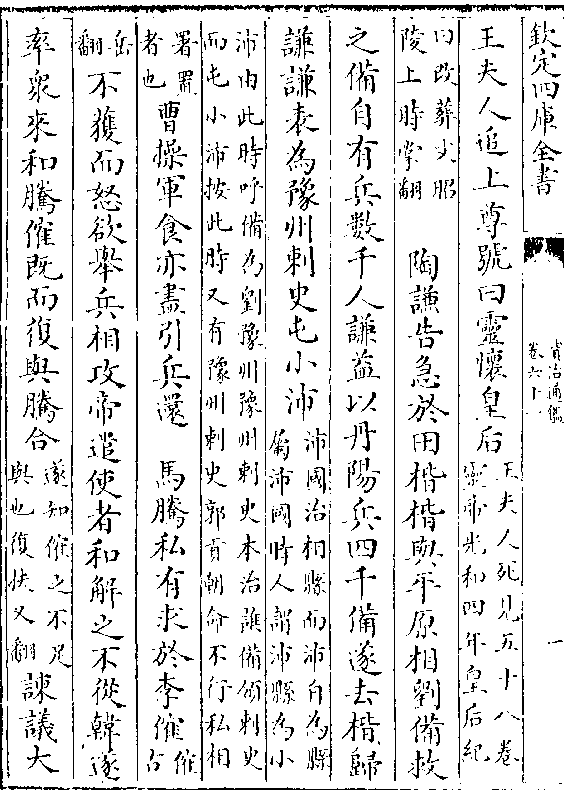 欽定四庫全書
資治通鑑
卷六十一
一
王夫人追上尊號曰靈懷皇后王夫人死見五十八卷
靈帝光和四年皇后紀
曰改葬文昭
陵上時掌翻
陶謙告急於田楷楷與平原相劉備救
之備自有兵數千人謙益以丹陽兵四千備遂去楷歸
謙謙表為豫州刺史屯小沛沛國治相縣而沛自為縣
屬沛國時人謂沛縣為小
沛由此時呼備為劉豫州豫州刺史本治譙備領刺史
而屯小沛按此時又有豫州刺史郭貢朝命不行私相
署置
者也
曹操軍食亦盡引兵還 馬騰私有求於李傕傕
古
岳
翻
不獲而怒欲舉兵相攻帝遣使者和解之不從韓遂
率衆來和騰傕既而復與騰合遂知傕之不足
與也復扶又翻
諫議大